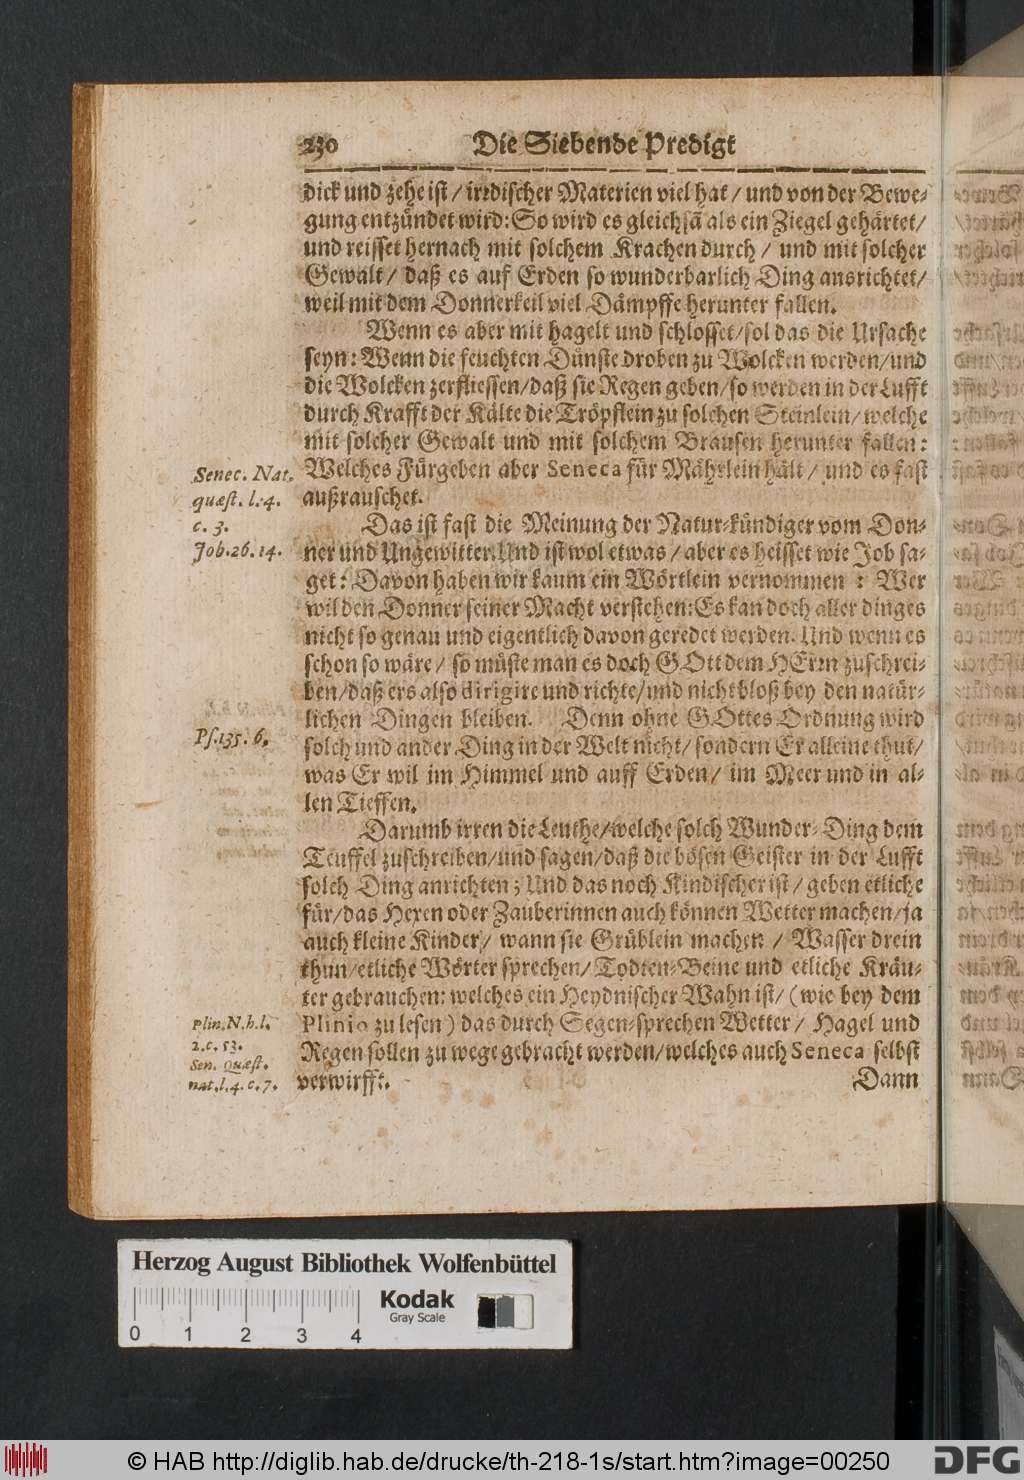 230 Die Siebende Predigt
dick und zehe ist / irrdischer Materien viel hat / und von der Bewe-
gung entzündet wird: So wird es gleichsã als ein Ziegel gehärtet /
und reisset hernach mit solchem Krachen durch / und mit solcher
Gewalt / daß es auf Erden so wunderbarlich Ding ausrichtet /
weil mit dem Donnerkeil viel Dämpffe herunter fallen.
Wenn es aber mit hagelt und schlosset / sol das die Ursache
seyn: Wenn die feuchten Dünste droben zu Wolcken werden / und
die Wolcken zerfliessen / daß sie Regen geben / so werden in der Lufft
durch Krafft der Kälte die Tröpflein zu solchen Steinlein / welche
mit solcher Gewalt und mit solchem Brausen herunter fallen:
Welches Fürgeben aber Seneca für Mährlein hält / und es fast
außrauschet.
Senec. Nat.
quæst. l. 4.
c. 3.
Job. 26. 14.
Das ist fast die Meinung der Natur-kündiger vom Don-
ner und Ungewitter. Und ist wol etwas / aber es heisset wie Job sa-
get: Davon haben wir kaum ein Wörtlein vernommen : Wer
wil den Donner seiner Macht verstehen: Es kan doch aller dinges
nicht so genau und eigentlich davon geredet werden. Und wenn es
schon so wäre / so müste man es doch GOtt dem HErrn zuschrei-
ben / daß ers also dirigire und richte / und nicht bloß bey den natür-
lichen Dingen bleiben. Denn ohne GOttes Ordnung wird
solch und ander Ding in der Welt nicht / sondern Er alleine thut /
was Er wil im Himmel und auff Erden / im Meer und in al-
len Tieffen.
Ps. 135. 6.
Darumb irren die Leuthe / welche solch Wunder-Ding dem
Teuffel zuschreiben / und sagen / daß die bösen Geister in der Lufft
solch Ding anrichten; Und das noch Kindischer ist / geben etliche
für / das Hexen oder Zauberinnen auch können Wetter machen / ja
auch kleine Kinder / wann sie Grüblein machen / Wasser drein
thun / etliche Wörter sprechen / Todten-Beine und etliche Kräu-
ter gebrauchen: welches ein Heydnischer Wahn ist / (wie bey dem
Plinio zu lesen) das durch Segen-sprechen Wetter / Hagel und
Regen sollen zu wege gebracht werden / welches auch Seneca selbst
verwirfft.
Plin. N. h. l.
2. c. 53.
Sen. Quæst.
nat. l. 4. c. 7.
Dann
Herzog August Bibliothek Wolfenbüttel
Kodak
Gray Scale
0 1 2 3 4
© HAB http://diglib.hab.de/drucke/th-218-1s/start.htm?image=00250
DFG